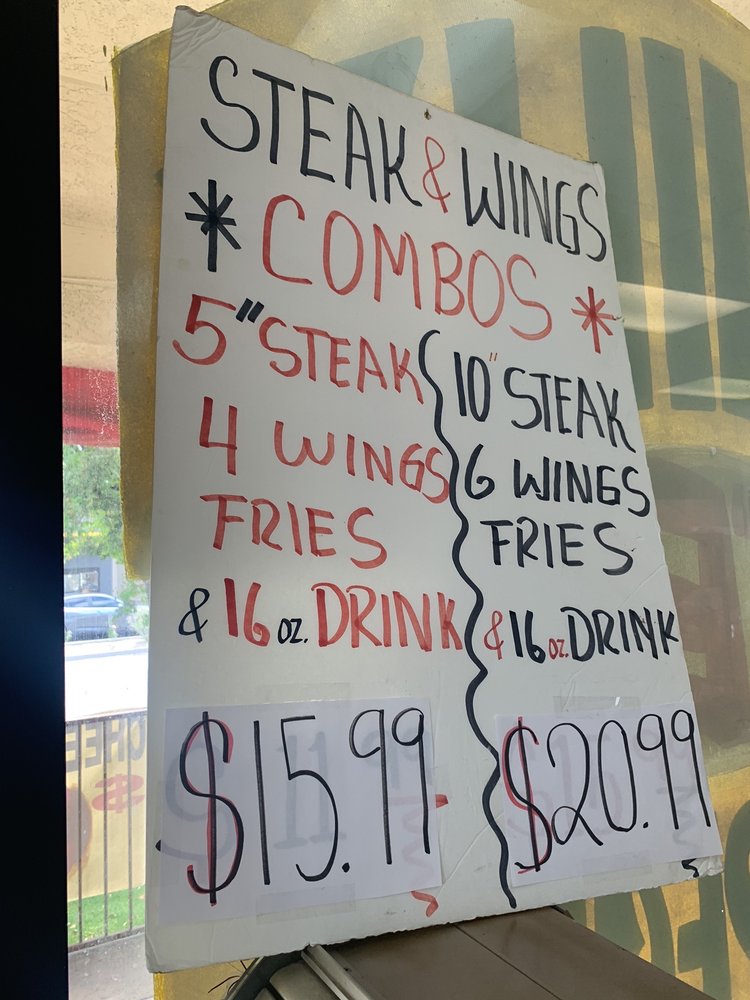 STEAK & WINGS
* COMBOS *
5" STEAK
4 WINGS
FRIES
& 16 oz. DRINK
$15.99
10" STEAK
6 WINGS
FRIES
& 16 oz. DRINK
$20.99